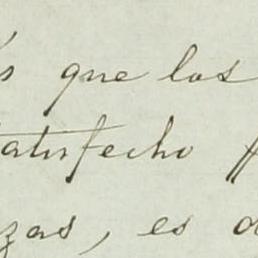 s que los
satisfecho
zas, es d